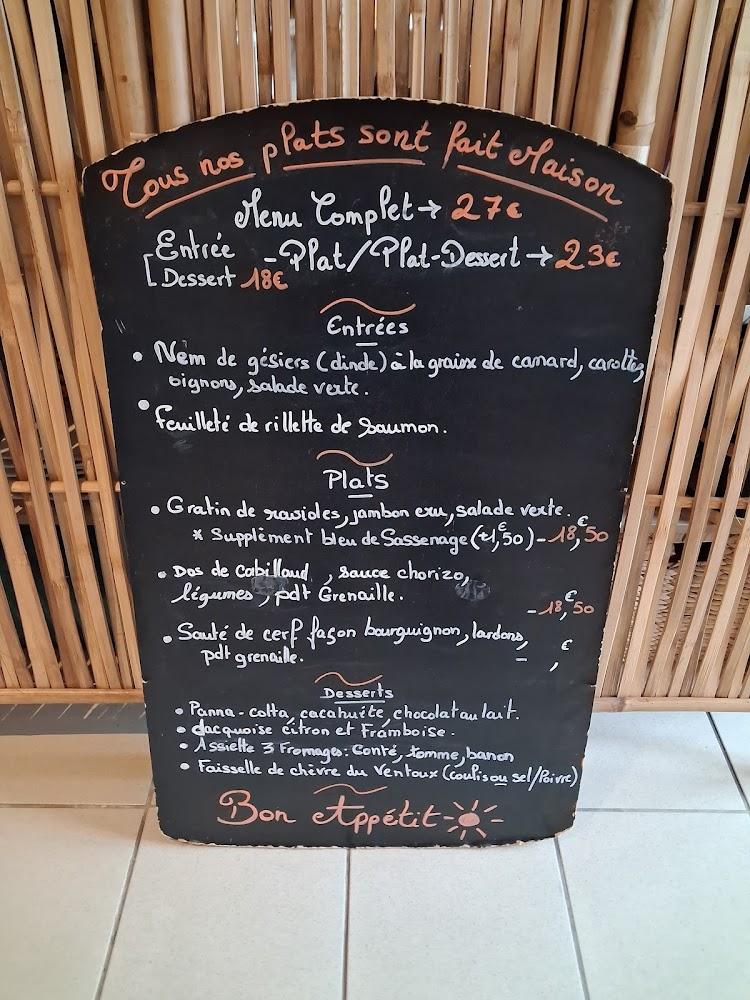 Tous nos plats sont fait Maison
Menu Complet → 27€
[Entrée -Plat/Plat-Dessert → 23€
[Dessert 18€
Entrées
• Nem de gésiers (dinde) à la graisse de canard, carottes,
oignons, salade verte.
• Feuilleté de rillette de saumon.
Plats
• Gratin de ravioles, jambon cru, salade verte.
* Supplément bleu de Sassenage (+1,€50) - 18,€50
• Dos de Cabillaud , sauce chorizo,
légumes, pdt Grenaille.
- 18,€50
• Sauté de cerf façon bourguignon, lardons,
pdt grenaille. - ,€
Desserts
• Panna-cotta, cacahuète, chocolat au lait.
• dacquoise citron et Framboise.
• Assiette 3 Fromages: Conté, tomme, banon
• Faisselle de chèvre du Ventoux (coulis ou sel/Poivre)
Bon Appétit